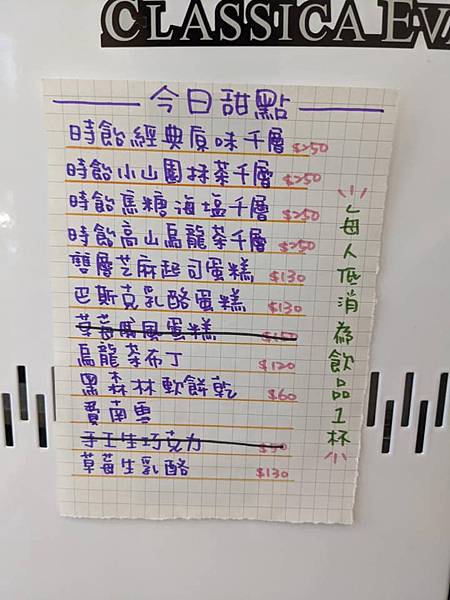 CLASSICA EV
今日甜點
時飴經典原味千層 $250
時飴小山園抹茶千層 $250
時飴焦糖海塩千層 $250
時飴高山烏龍茶千層 $250
雙層芝麻起司蛋糕 $130
巴斯克乳酪蛋糕 $130
草莓戚風蛋糕
烏龍茶布丁 $120
黑森林軟餅乾 $60
費南雪
手工生巧克力
草莓生乳酪 $130
每人低消為飲品1杯